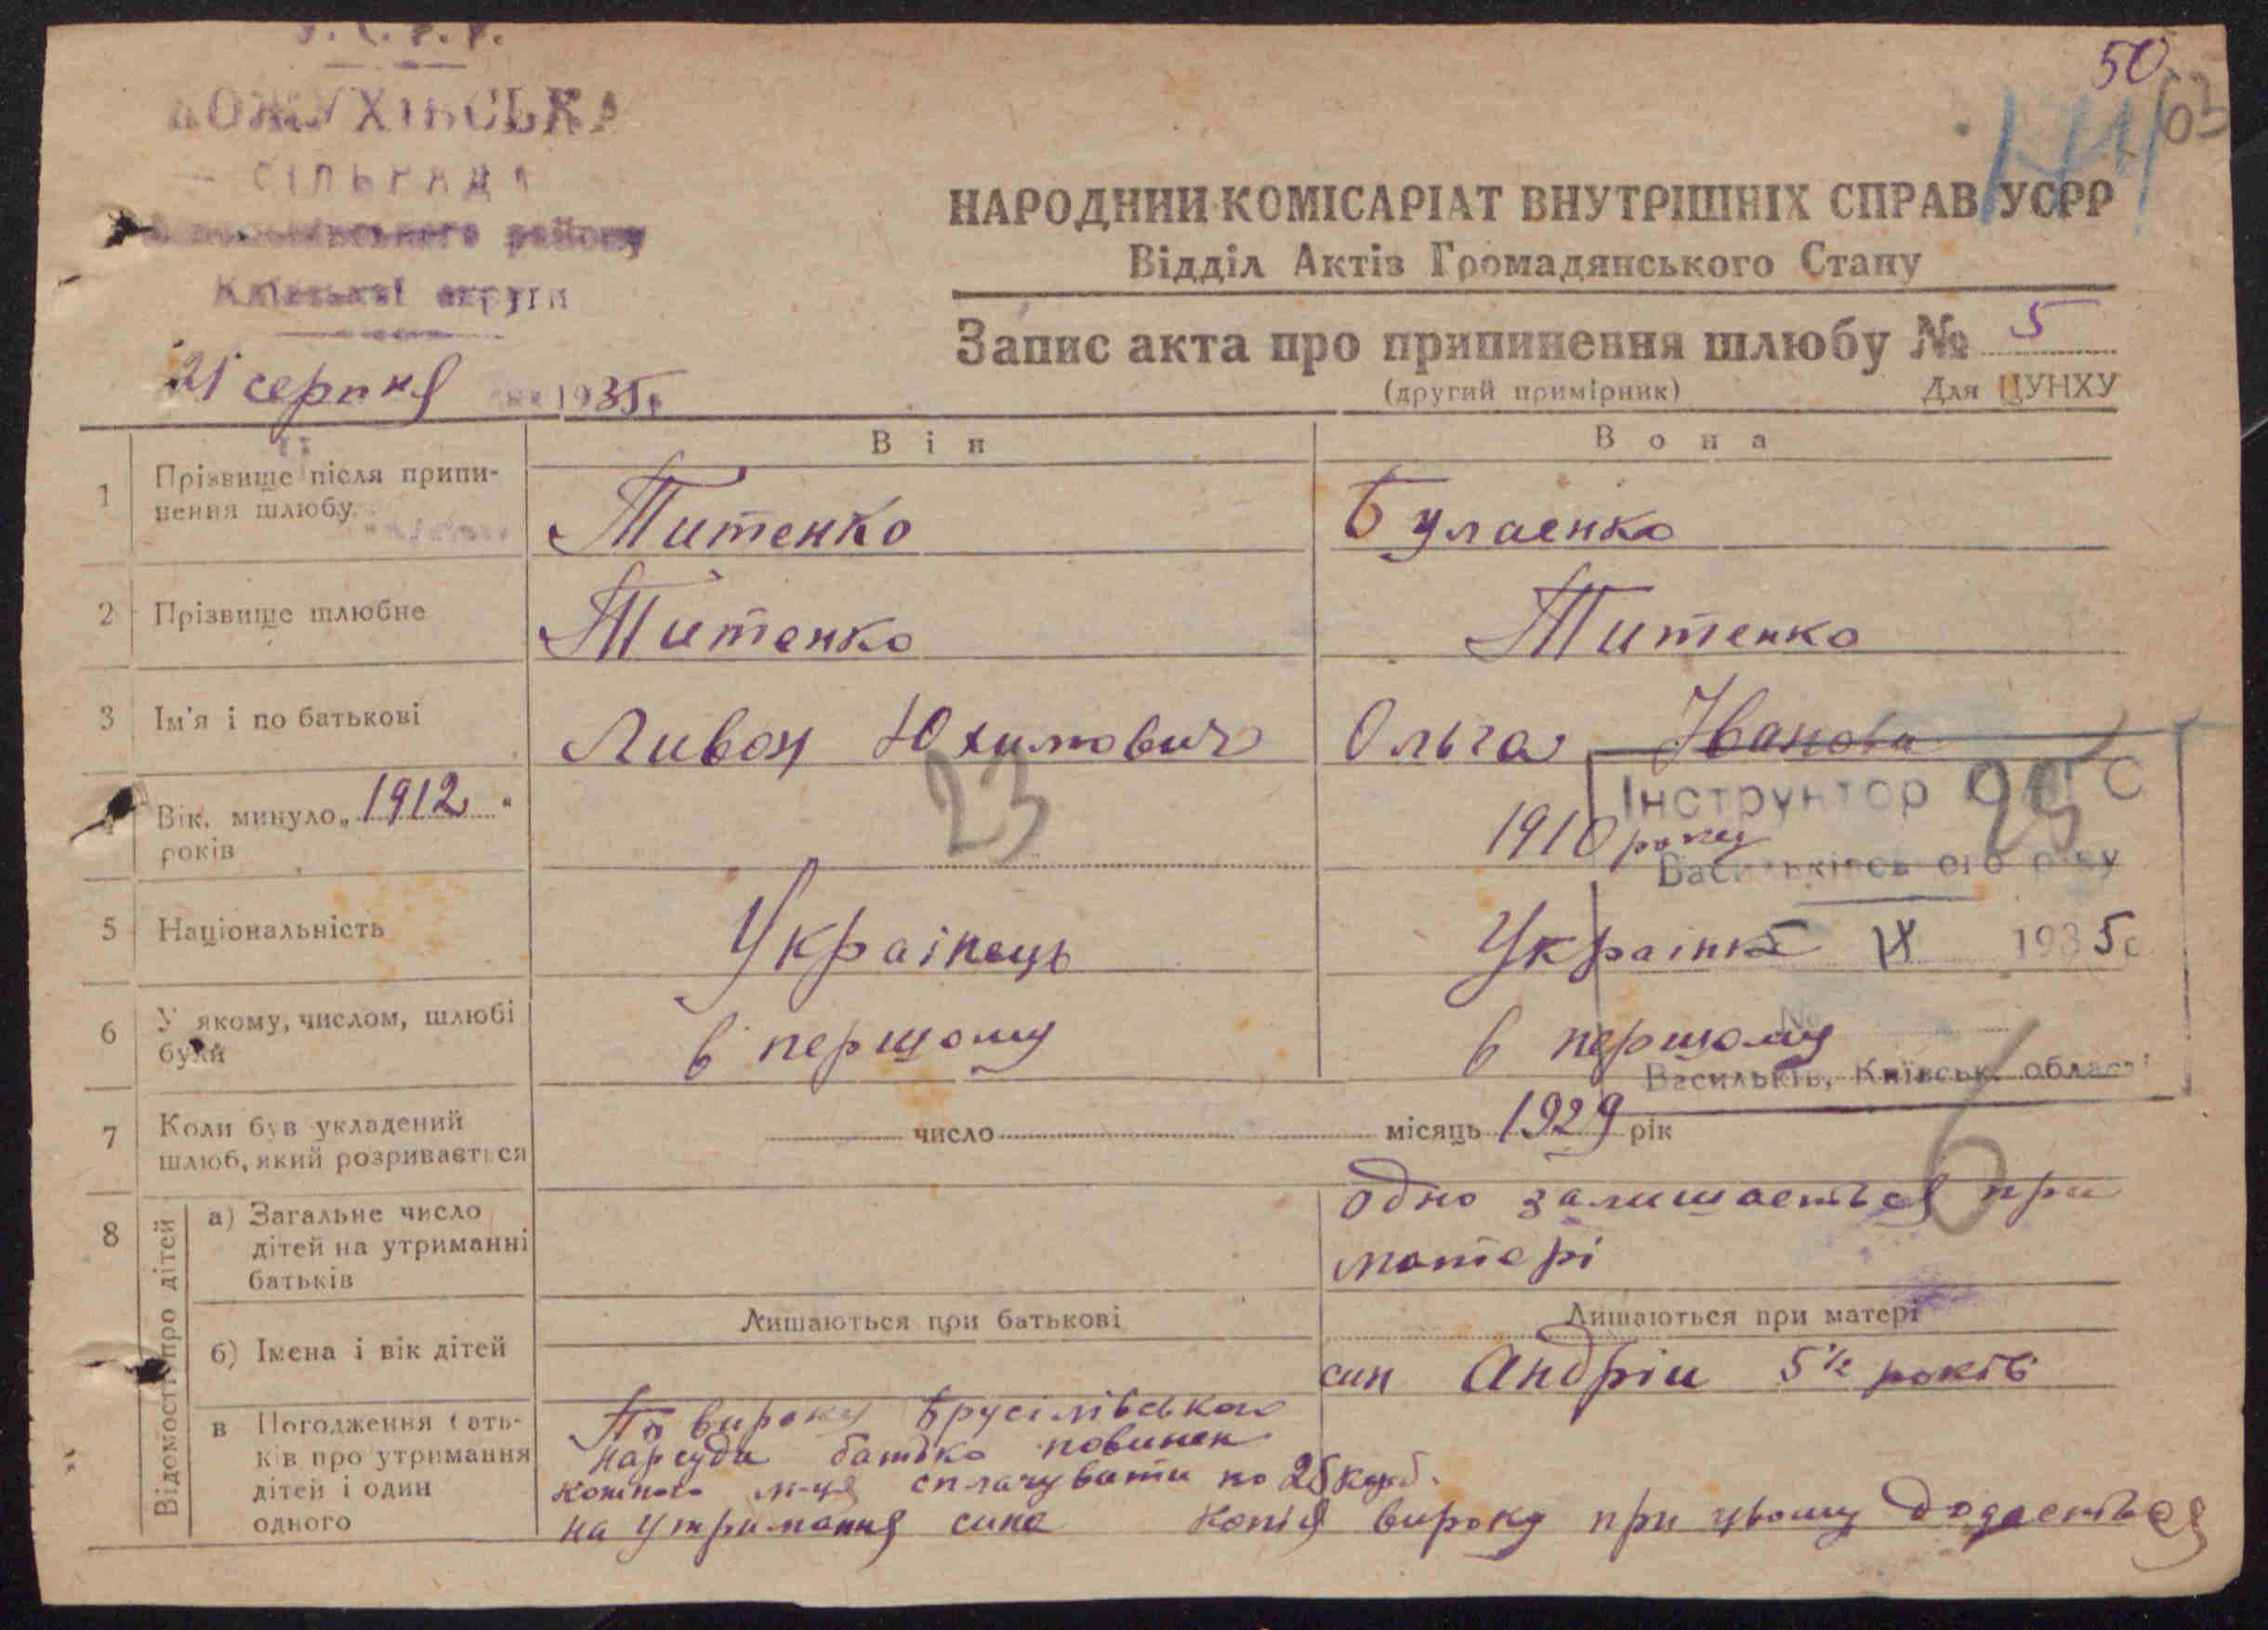 У.С.Р.Р.
КОЖУХІВСЬКА
СІЛЬРАДА
району
Київської округи
21 серпня 1935 р.
50
63
НАРОДНИЙ КОМІСАРІАТ ВНУТРІШНІХ СПРАВ УСРР
Відділ Актів Громадянського Стану
Запис акта про припинення шлюбу № 5
(другий примірник) Для ЦУНХУ
Він Вона
1 Прізвище після припи-
нення шлюбу Титенко Булаенко
2 Прізвище шлюбне Титенко Титенко
3 Ім'я і по батькові Ливон Юхимович Ольга Іванова
4 Вік. минуло „1912" 23 1910 року 25
років
Інструктор
Васильківського р-ну
IX 1935
№
Васильків, Київськ. області
5 Національність Українець Українка
6 У якому, числом, шлюбі
були в першому в першому
7 Коли був укладений
шлюб, який розривається число місяць 1929 рік
6
8 Відомості про дітей
а) Загальне число
дітей на утриманні
батьків
одно залишається при
матері
Лишаються при батькові Лишаються при матері
б) Імена і вік дітей син Андрій 5½ років
в Погодження бать-
ків про утримання
дітей і один
одного
По вироку Брусілівськог
нарсуда батько повинен
кожного м-ця сплачувати по 25 карб.
на утримання сина Копія вироку при цьому додається